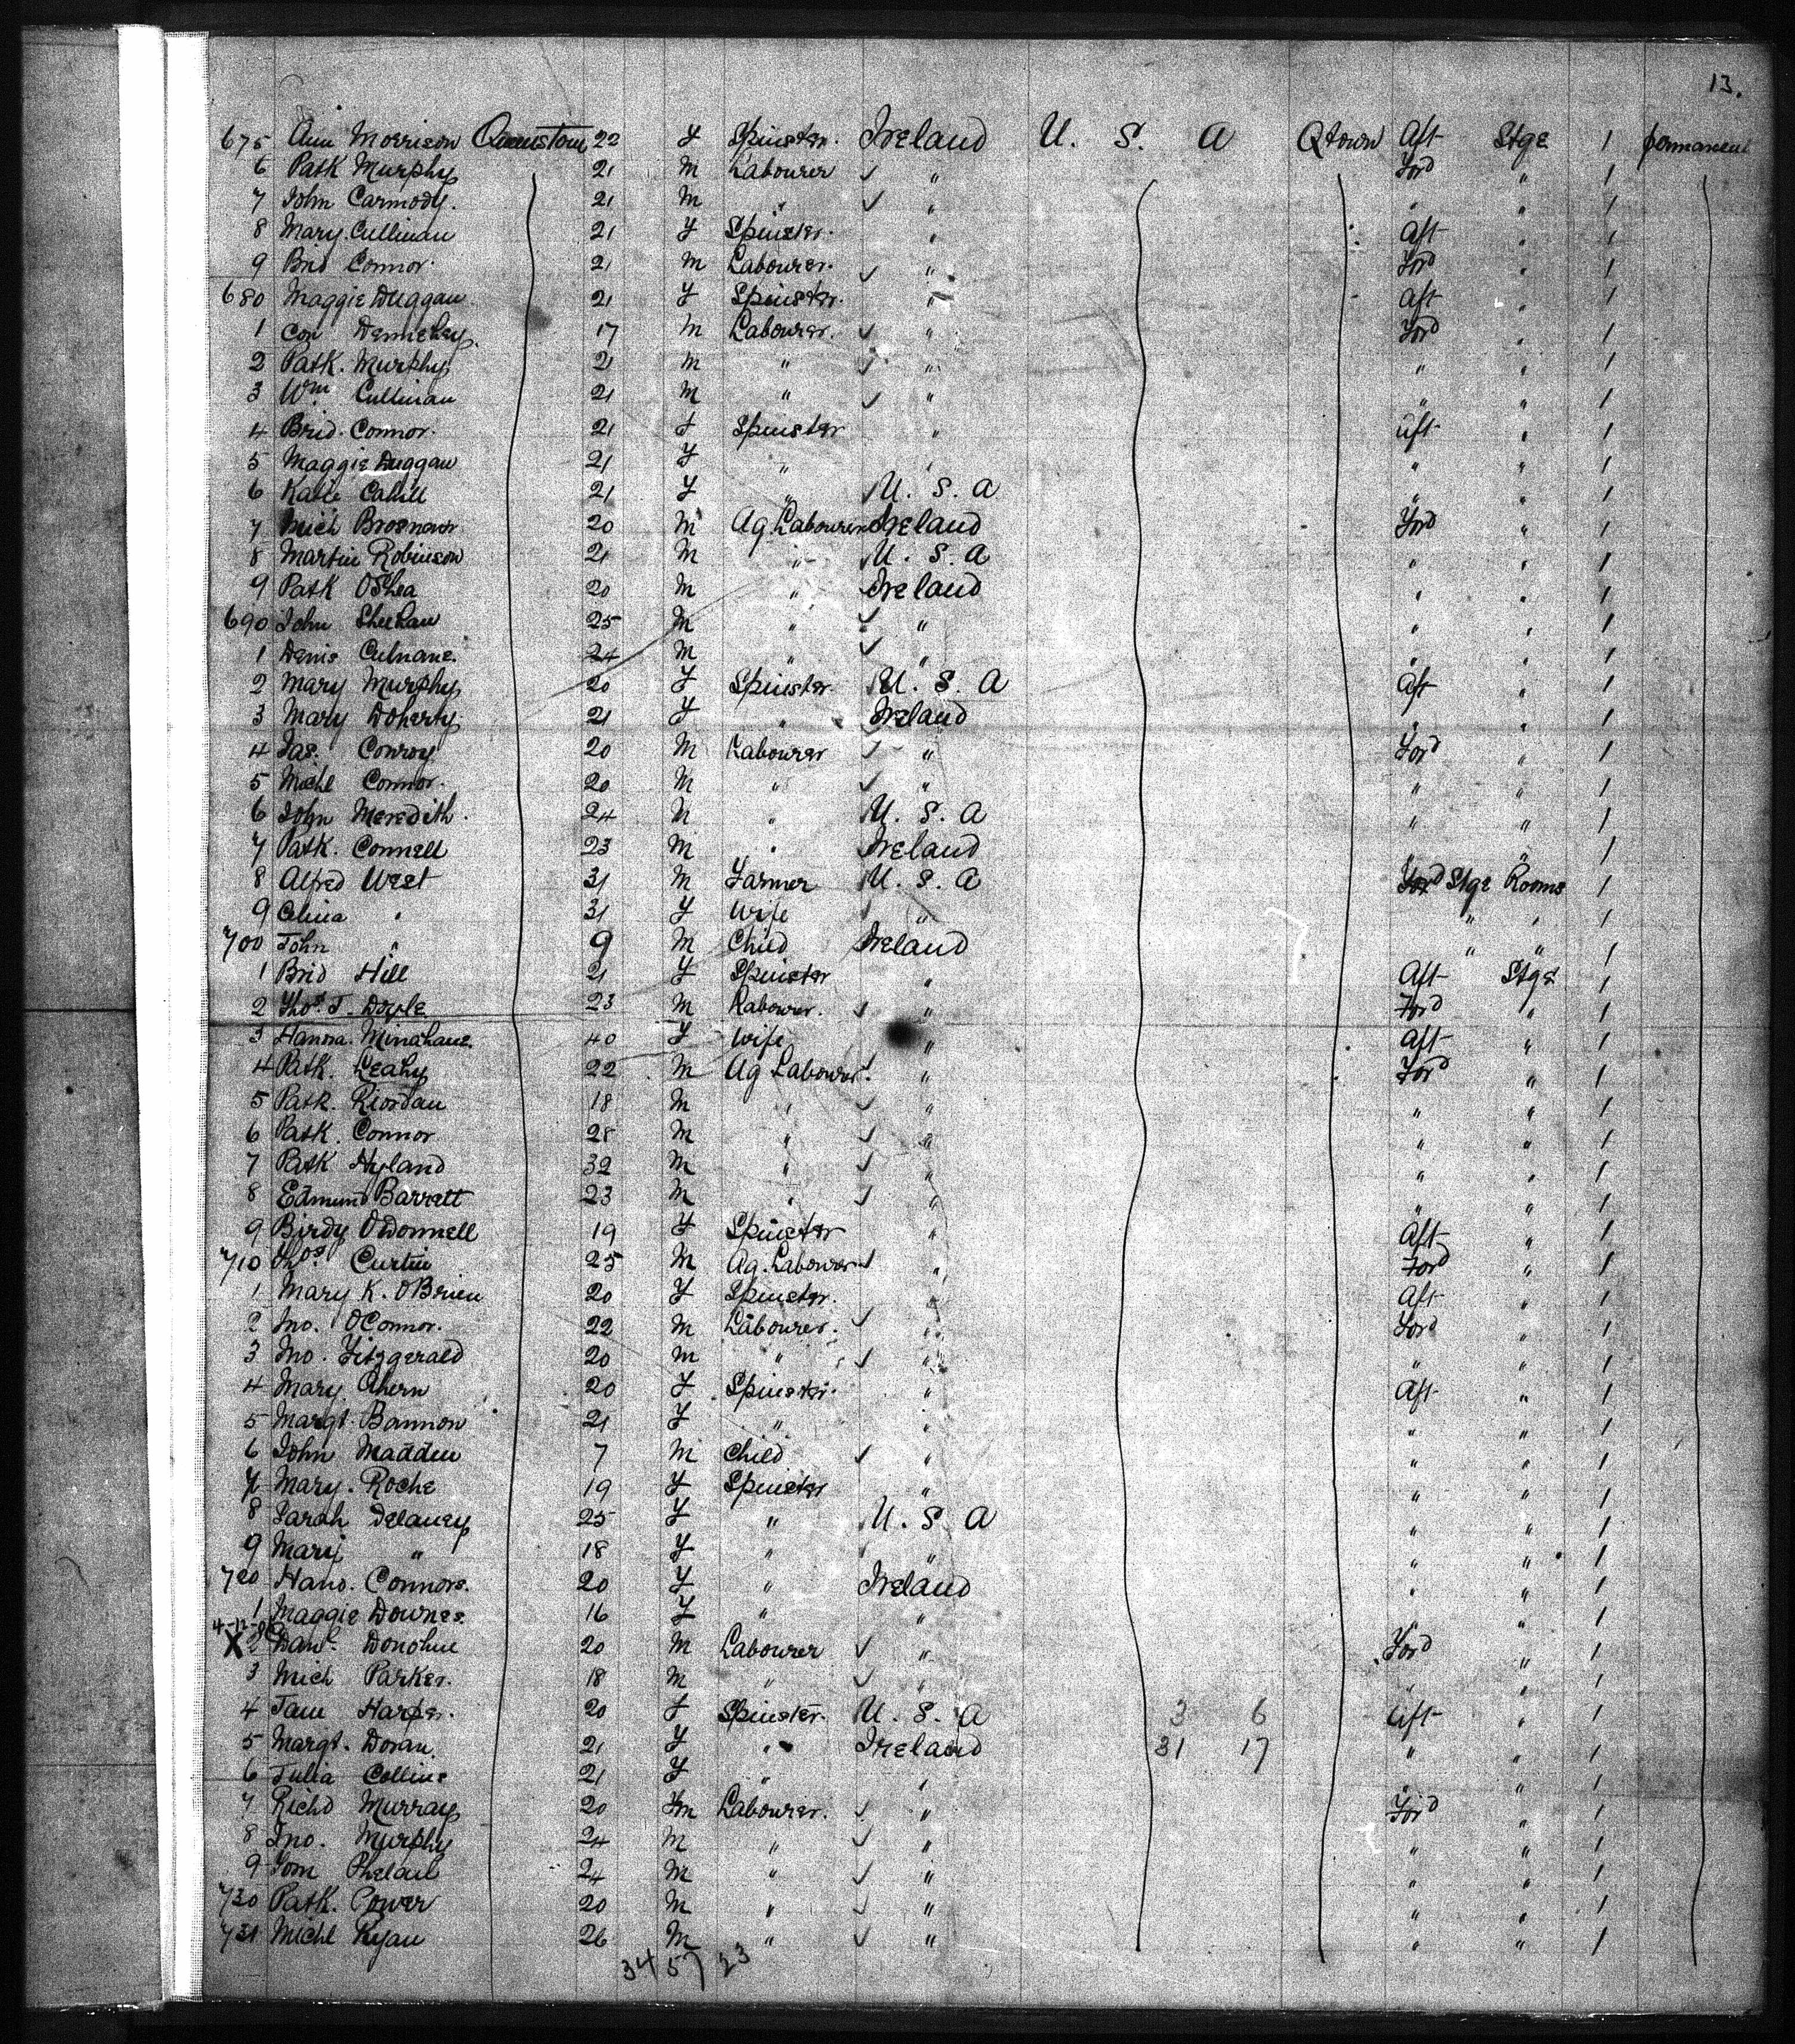 13.
675 Ann Morrison Queenstown 22 F Spinster. Ireland U. S. A Qtown Aft Stge 1 permanent
6 Patk Murphy 21 M Labourer ✓ " Ford " 1
7 John Carmody. 21 M " ✓ " " " 1
8 Mary Cullinan 21 F Spinster. " Aft " 1
9 Brid Connor. 21 M Labourer. ✓ " Ford " 1
680 Maggie Duggan 21 F Spinster. " Aft " 1
1 Con Dennehey. 17 M Labourer. ✓ " Ford " 1
2 Patk. Murphy 21 M " ✓ " " " 1
3 Wm Cullinan 21 M " ✓ " " " 1
4 Brid. Connor. 21 F Spinster " Aft " 1
5 Maggie Duggan 21 F " " " " 1
6 Katie Cahill 21 F " U. S. A " " 1
7 Mich Brosnan 20 M Ag. Labourer Ireland Ford " 1
8 Martin Robinson 21 M " U. S. A " " 1
9 Patk OShea 20 M " Ireland " " 1
690 John Sheehan 25 M " ✓ " " " 1
1 Denis Culnane. 24 M " ✓ " " " 1
2 Mary Murphy 20 F Spinster. U. S. A Aft " 1
3 Mary Doherty. 21 F " Ireland " " 1
4 Jas. Conroy 20 M Labourer ✓ " Ford " 1
5 Michl Connor. 20 M " ✓ " " " 1
6 John Meredith. 24 M " U. S. A " " 1
7 Patk. Connell 23 M " Ireland " " 1
8 Alfred West 31 M Farmer U. S. A Ford Stge Rooms 1
9 Celina " 31 F Wife " " " 1
700 John " 9 M Child Ireland " " 1
1 Brid Hill 21 F Spinster " Aft Stge 1
2 Thos. J. Doyle 23 M Labourer. ✓ " Ford " 1
3 Hanna. Minahane. 40 F Wife " Aft " 1
4 Patk. Leahy 22 M Ag Labourer. ✓ " Ford " 1
5 Patk. Riordan 18 M " ✓ " " " 1
6 Patk. Connor 28 M " ✓ " " " 1
7 Patk Hyland 32 M " ✓ " " " 1
8 Edmund Barrett 23 M " ✓ " " " 1
9 Birdy ODonnell 19 F Spinster " Aft " 1
710 Thos. Curtin 25 M Ag. Labourer ✓ " Ford " 1
1 Mary K. OBrien 20 F Spinster. " Aft " 1
2 Jno. OConnor. 22 M Labourer. ✓ " Ford " 1
3 Jno. Fitzgerald 20 M " ✓ " " " 1
4 Mary Ahern 20 F Spinster. " Aft " 1
5 Margt. Bannon 21 F " " " " 1
6 John Madden 7 M Child ✓ " " " 1
7 Mary. Roche 19 F Spinster " " " 1
8 Sarah Delaney 25 F " U. S. A " " 1
9 Mary " 18 F " " " " 1
720 Hano. Connors. 20 F " Ireland " " 1
1 Maggie Downes. 16 F " " " " 1
X 2 Danl. Donohue 20 M Labourer ✓ " Ford " 1
3 Mich Parker. 18 M " ✓ " " " 1
4 Jane Harper. 20 F Spinster. U. S. A 3 6 Aft " 1
5 Margt. Doran. 21 F " Ireland 31 17 " " 1
6 Julia Collins 21 F " " " " 1
7 Richd Murray 20 M Labourer. ✓ " Ford " 1
8 Jno. Murphy 24 M " ✓ " " " 1
9 Tom Phelan 24 M " ✓ " " " 1
730 Patk. Power 20 M " ✓ " " " 1
731 Michl Ryan 26 M " ✓ " " " 1
34 57 23